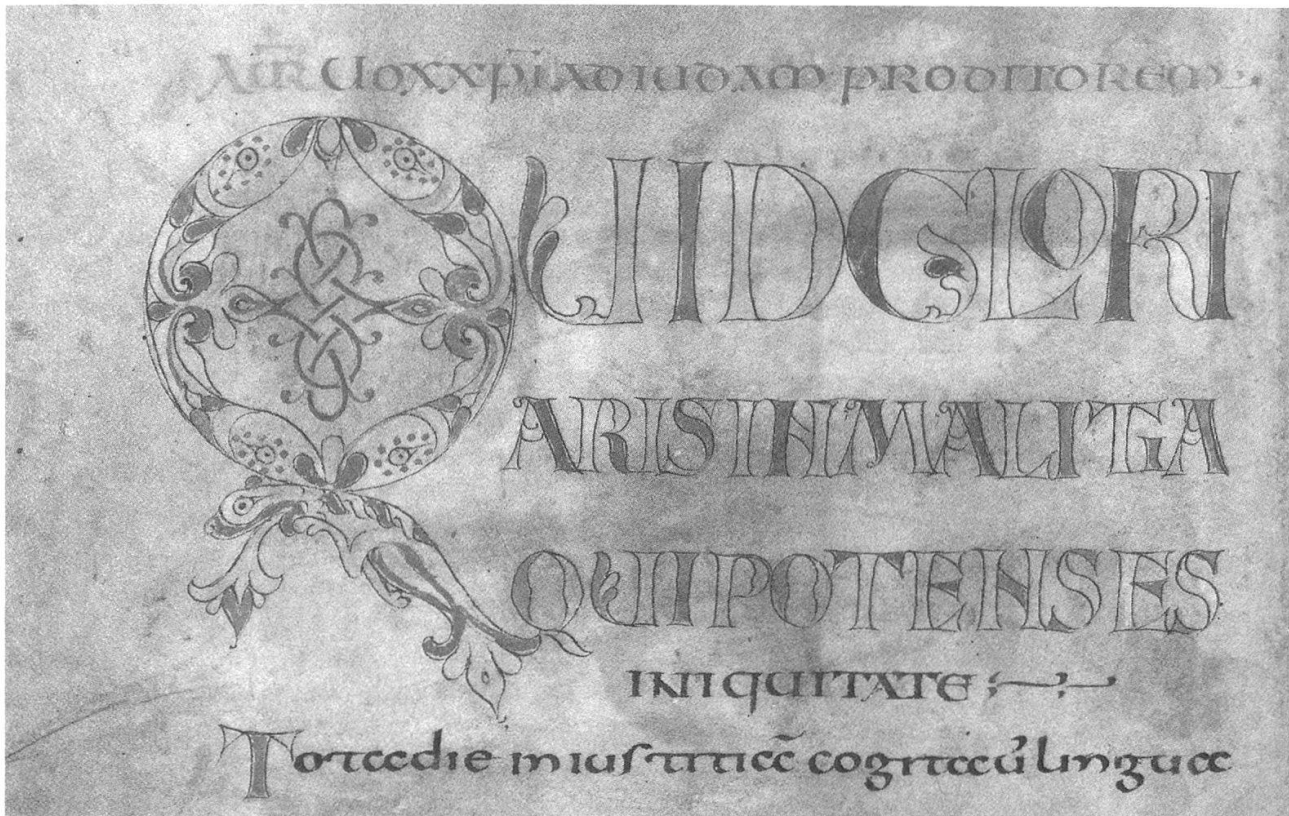 AIT̅R̅ UOX XP̅I AD IUDAM PRODITOREM
QUID GLORI
ARIS IN MALITIA
QUI POTENS ES
INIQUITATE
Tota die iniustitiā cogitauit̅ lingua